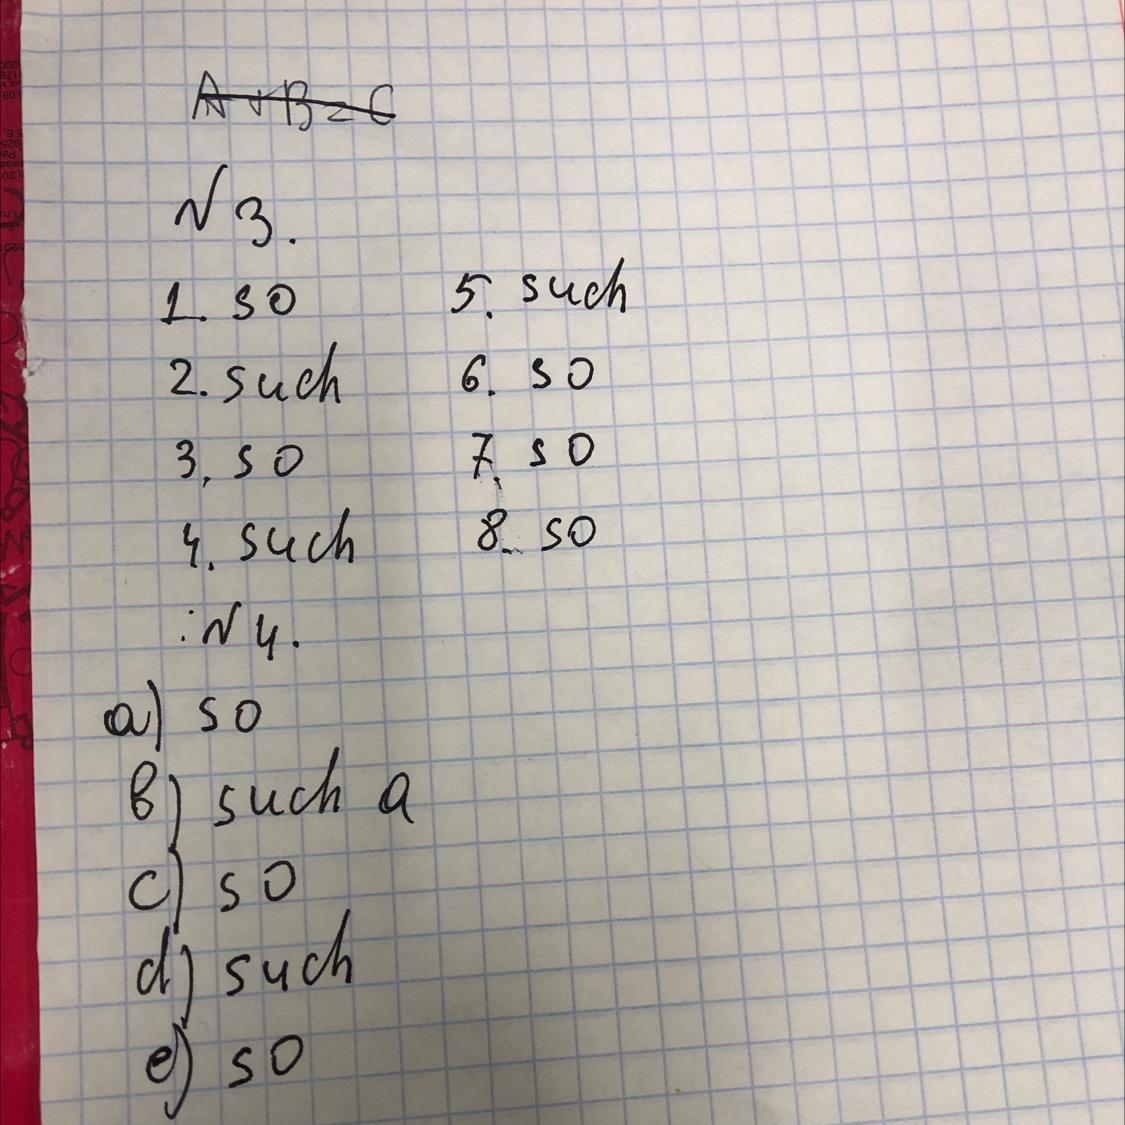 A + B = C
№ 3.
1. so
2. such
3. so
4. such
5. such
6. so
7. so
8. so
№ 4.
a) so
b) such a
c) so
d) such
e) so